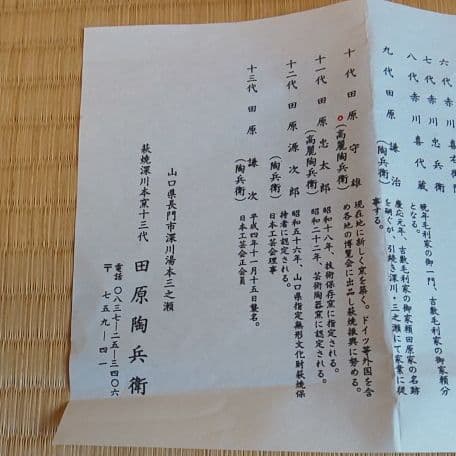 六代 赤川喜右衛門
七代 赤川忠兵衛
八代 赤川喜代蔵
晩年毛利家の御一門、吉敷毛利家の御家頼分
となる。
九代 田原謙治
(陶兵衛)
慶応元年、吉敷毛利家の御家頼田原家の名跡
を嗣ぐが、引続き深川・三之瀬にて家業に従
事する。
十代 田原守雄
(高麗陶兵衛)
現在地に新しく窯を築く。ドイツ等外国を含
め各地の博覧会に出品し萩焼振興に努める。
十一代 田原忠太郎
(高麗陶兵衛)
昭和十八年、技術保存窯に指定される。
昭和二十二年、芸術陶器窯に認定される。
十二代 田原源次郎
(陶兵衛)
昭和五十六年、山口県指定無形文化財萩焼保
持者に認定される。
日本工芸会理事
十三代 田原謙次
(陶兵衛)
平成四年十一月十五日襲名。
日本工芸会正会員
山口県長門市深川湯本三之瀬
萩焼深川本窯十三代 田原陶兵衛
電話 〇八三七—二五—三四〇六
〒 七五九—四一